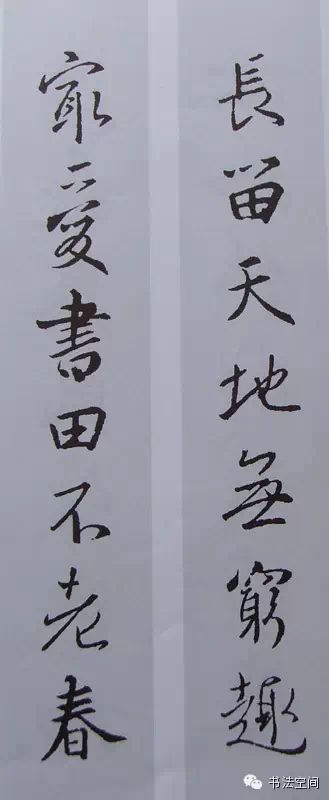 長留天地無窮趣
寂愛書田不老春
书法空间